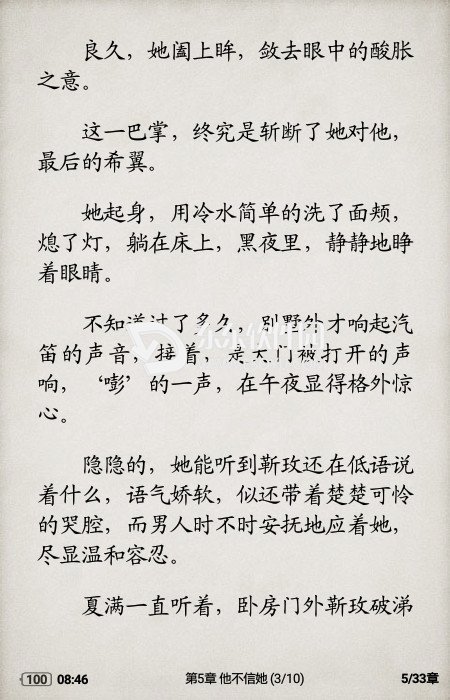 良久，她阖上眸，敛去眼中的酸胀
之意。
这一巴掌，终究是斩断了她对他，
最后的希翼。
她起身，用冷水简单的洗了面颊，
熄了灯，躺在床上，黑夜里，静静地睁
着眼睛。
不知道过了多久，别野外才响起汽
笛的声音，接着，是大门被打开的声
响，‘嘭’的一声，在午夜显得格外惊
心。
隐隐的，她能听到靳玫还在低语说
着什么，语气娇软，似还带着楚楚可怜
的哭腔，而男人时不时安抚地应着她，
尽显温和容忍。
夏满一直听着，卧房门外靳玫破涕
100 08:46 第5章 他不信她 (3/10) 5/33章